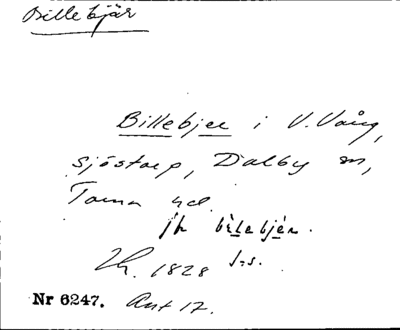 Billebjär
Billebjer i V. Vång,
Sjöstorp, Dalby sn,
Torna hd.
jfr bìlebjèr.
1828 s:s.
Nr 6247. Ant 17.